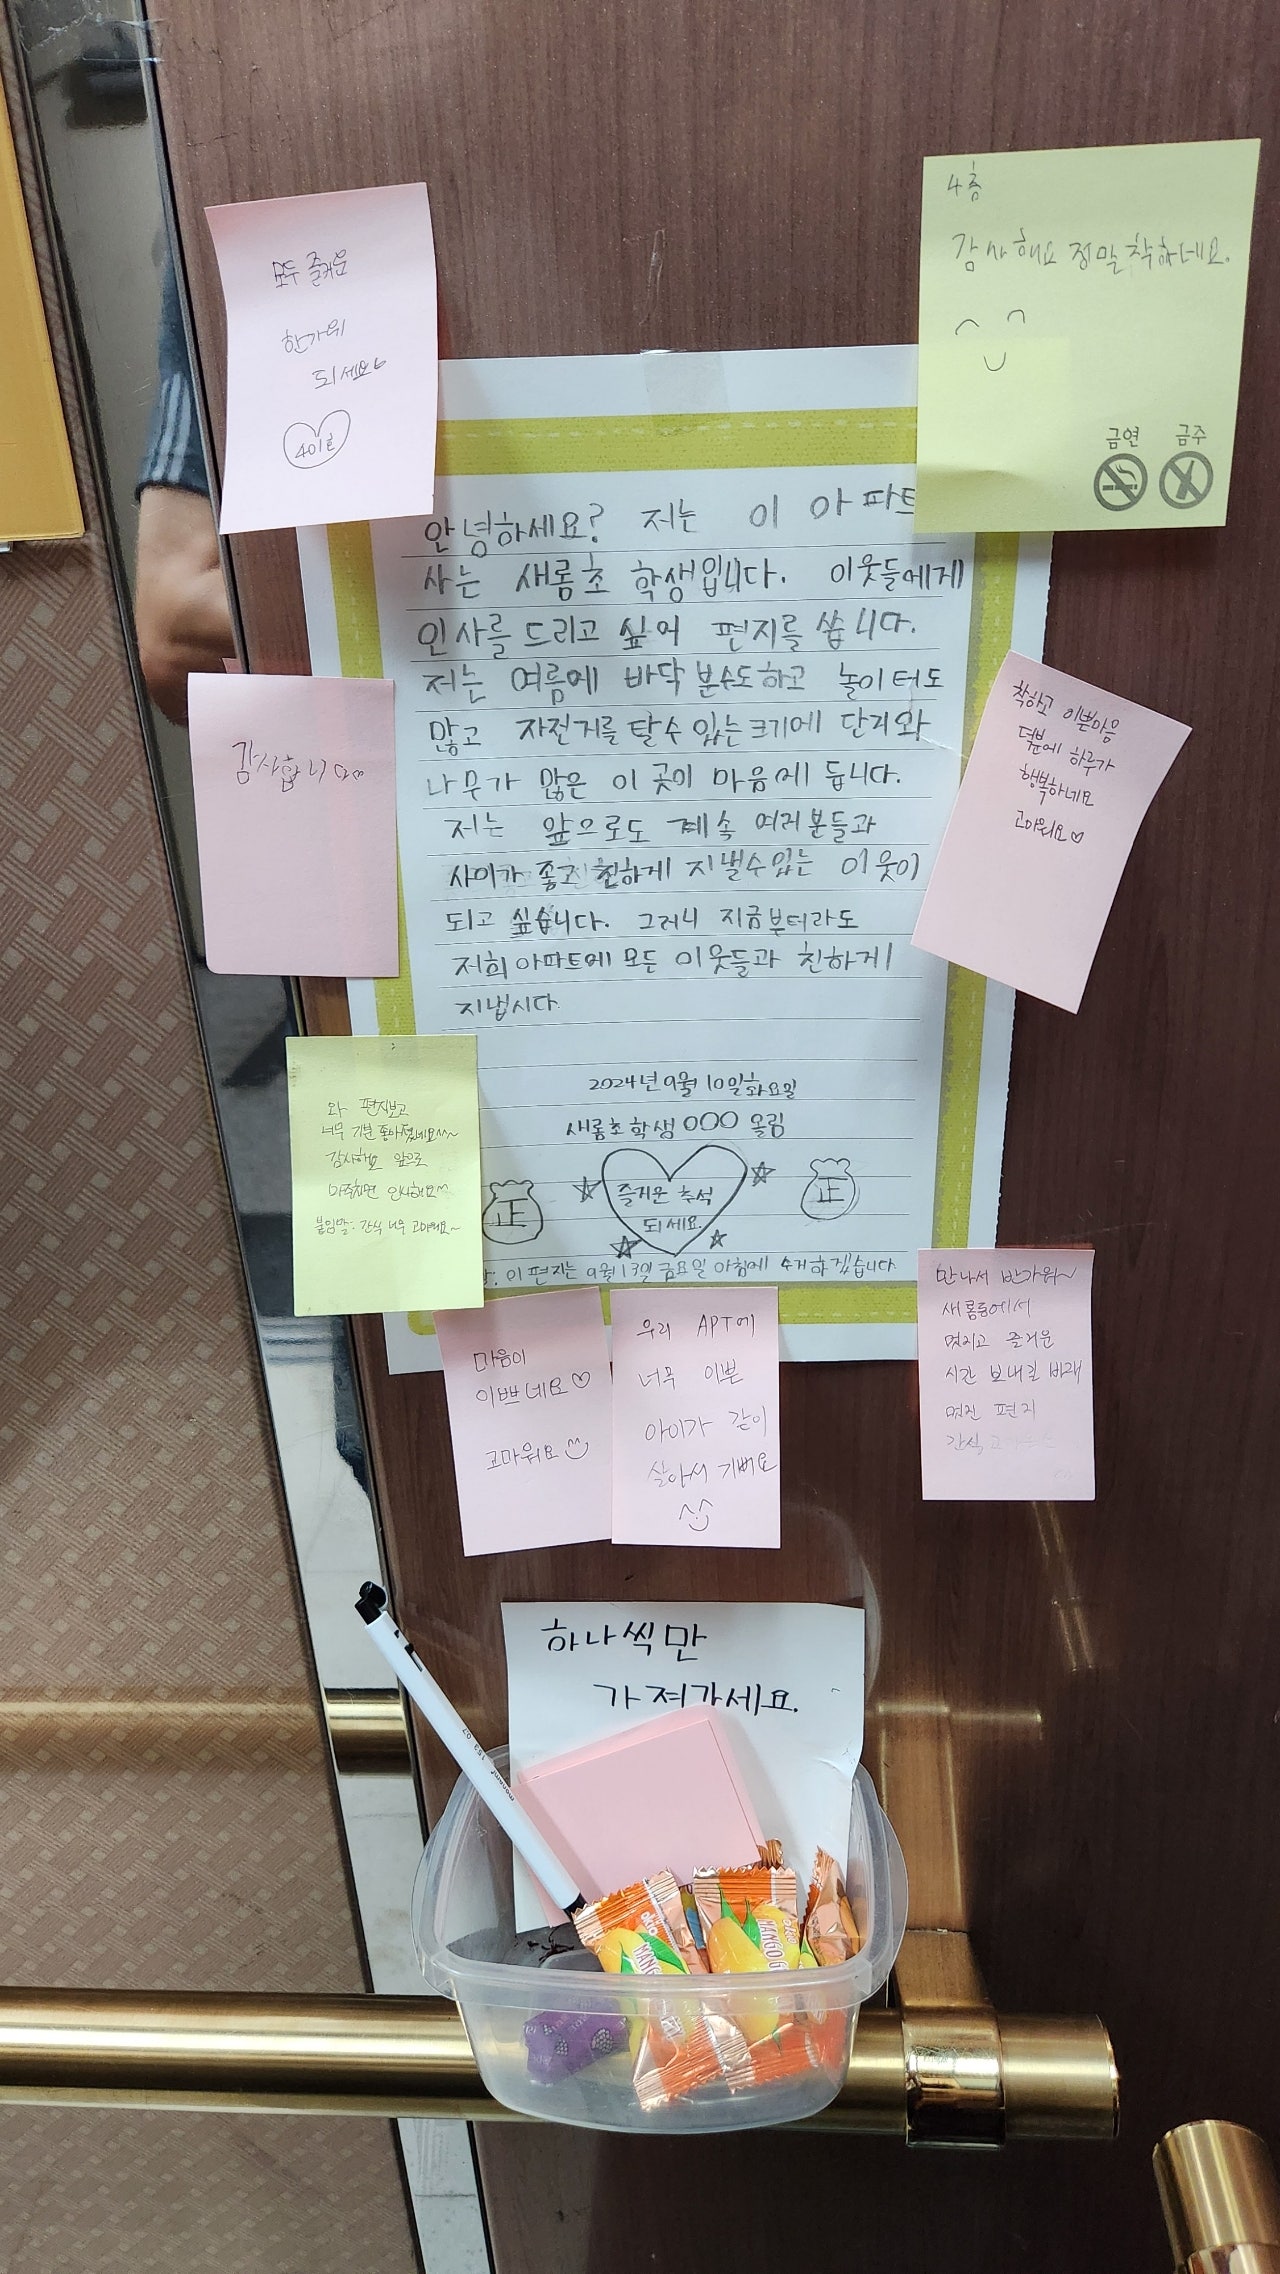 모두 즐거운
한가위
되세요
401호
4층
감사해요 정말 착하네요.
금연 금주
안녕하세요? 저는 이 아파트
사는 새롬초 학생입니다. 이웃들에게
인사를 드리고 싶어 편지를 씁니다.
저는 여름에 바닥 분수도하고 놀이터도
많고 자전거를 탈수 있는크기에 단지와
나무가 많은 이 곳이 마음에 듭니다.
저는 앞으로도 계속 여러분들과
사이가 좋고 친하게 지낼수있는 이웃이
되고 싶습니다. 그러니 지금부터라도
저희 아파트에 모든 이웃들과 친하게
지냅시다.
2024년 9월 10일화요일
새롬초 학생 OOO 올림
즐거운 추석
되세요.
正
正
이 편지는 9월 13일 금요일 아침에 수거하겠습니다
감사합니다
착하고 이쁜마음
덕분에 하루가
행복하네요
고마워요
와 편지보고
너무 기분 좋아졌네요^^~
감사해요 앞으로
마주치면 인사해요
붙임말: 간식 너무 고마워요~
마음이
이쁘네요
고마워요
우리 APT에
너무 이쁜
아이가 같이
살아서 기뻐요
만나서 반가워~
새롬동에서
멋지고 즐거운
시간 보내길 바래
멋진 편지
간식
하나씩만
가져가세요.
monami 153 0.7
okio
MANGO
MANGO G